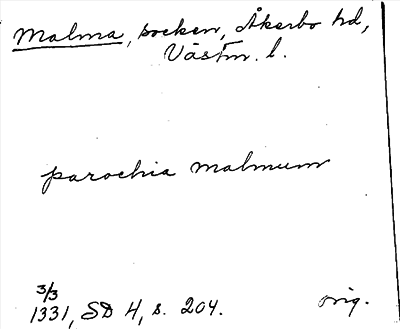 Malma, socken, Åkerbo hd,
Västm. l.
parochia malmum
3/3
1331, SD 4, s. 204. orig.